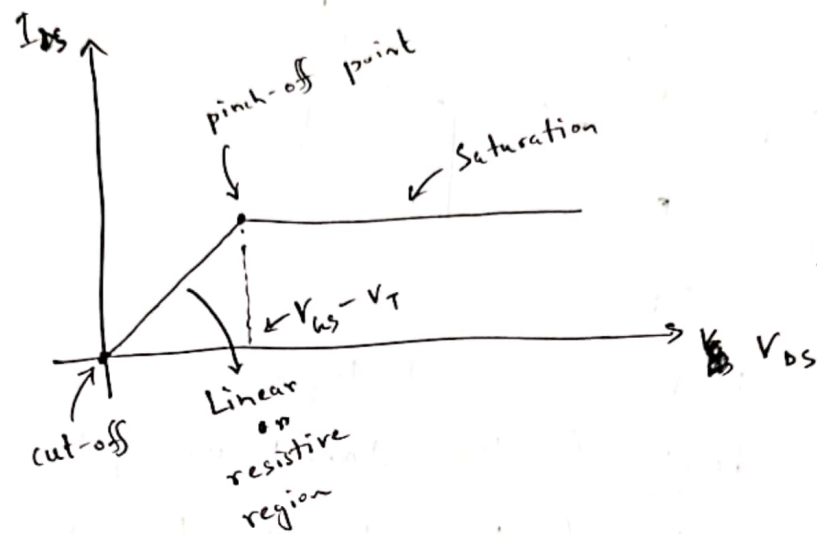 I_DS
pinch-off point
Saturation
V_GS - V_T
V_DS
Linear
or
resistive
region
cut-off